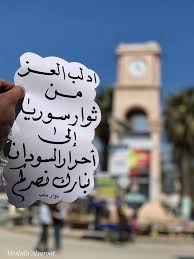 ادلب العز
من
ثوار سوريا
إلى
أحرار السودان
نبارك نصركم
ثوار حلب
Mostafa Alsarout